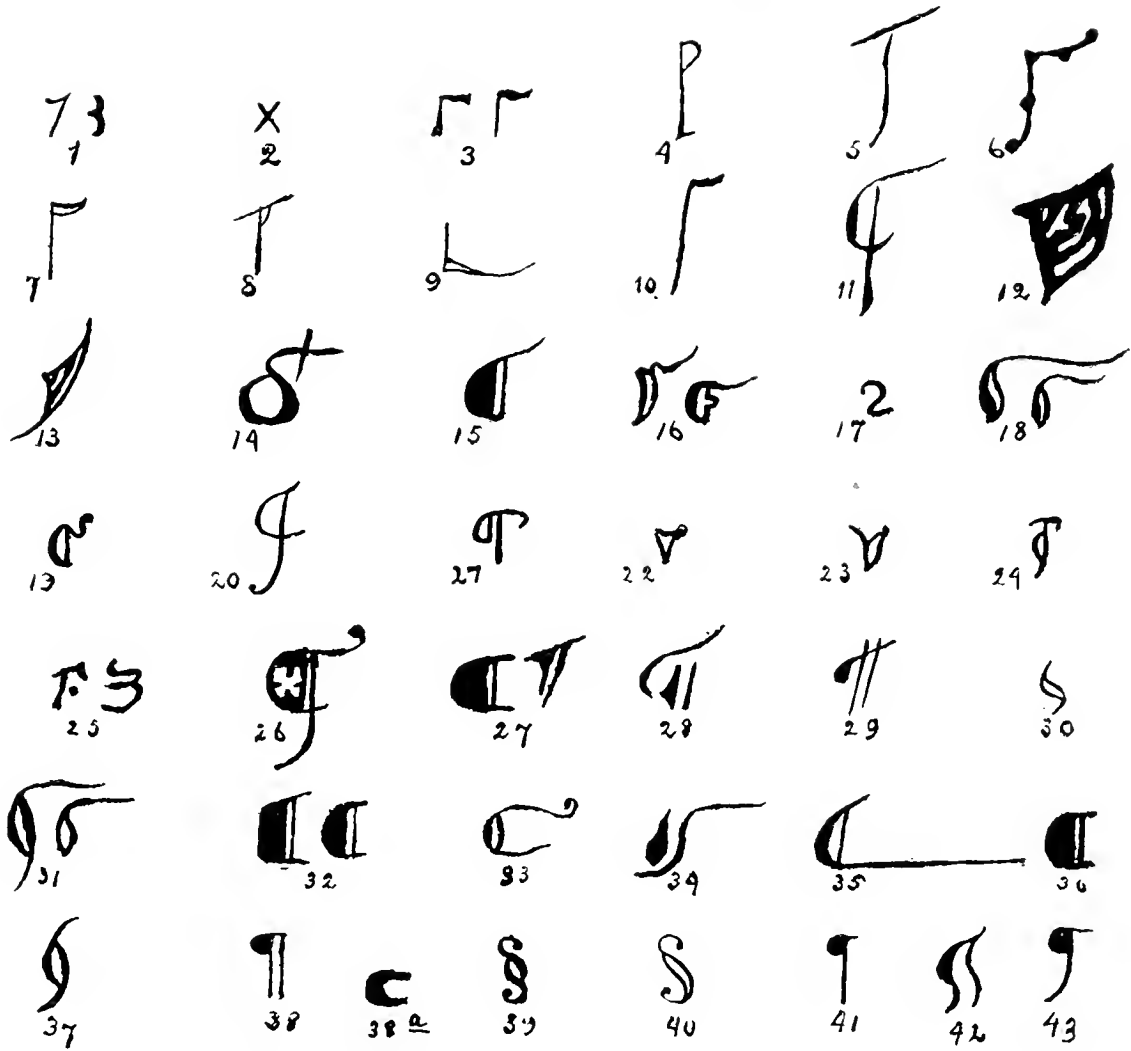 1 2 3 4 5 6
7 8 9 10. 11 12
13 14 15 16 17 18
19 20 27 22 23 24
25 26 27 28 29 30
31 32 33 34 35 36
37 38 38a 39 40 41 42 43